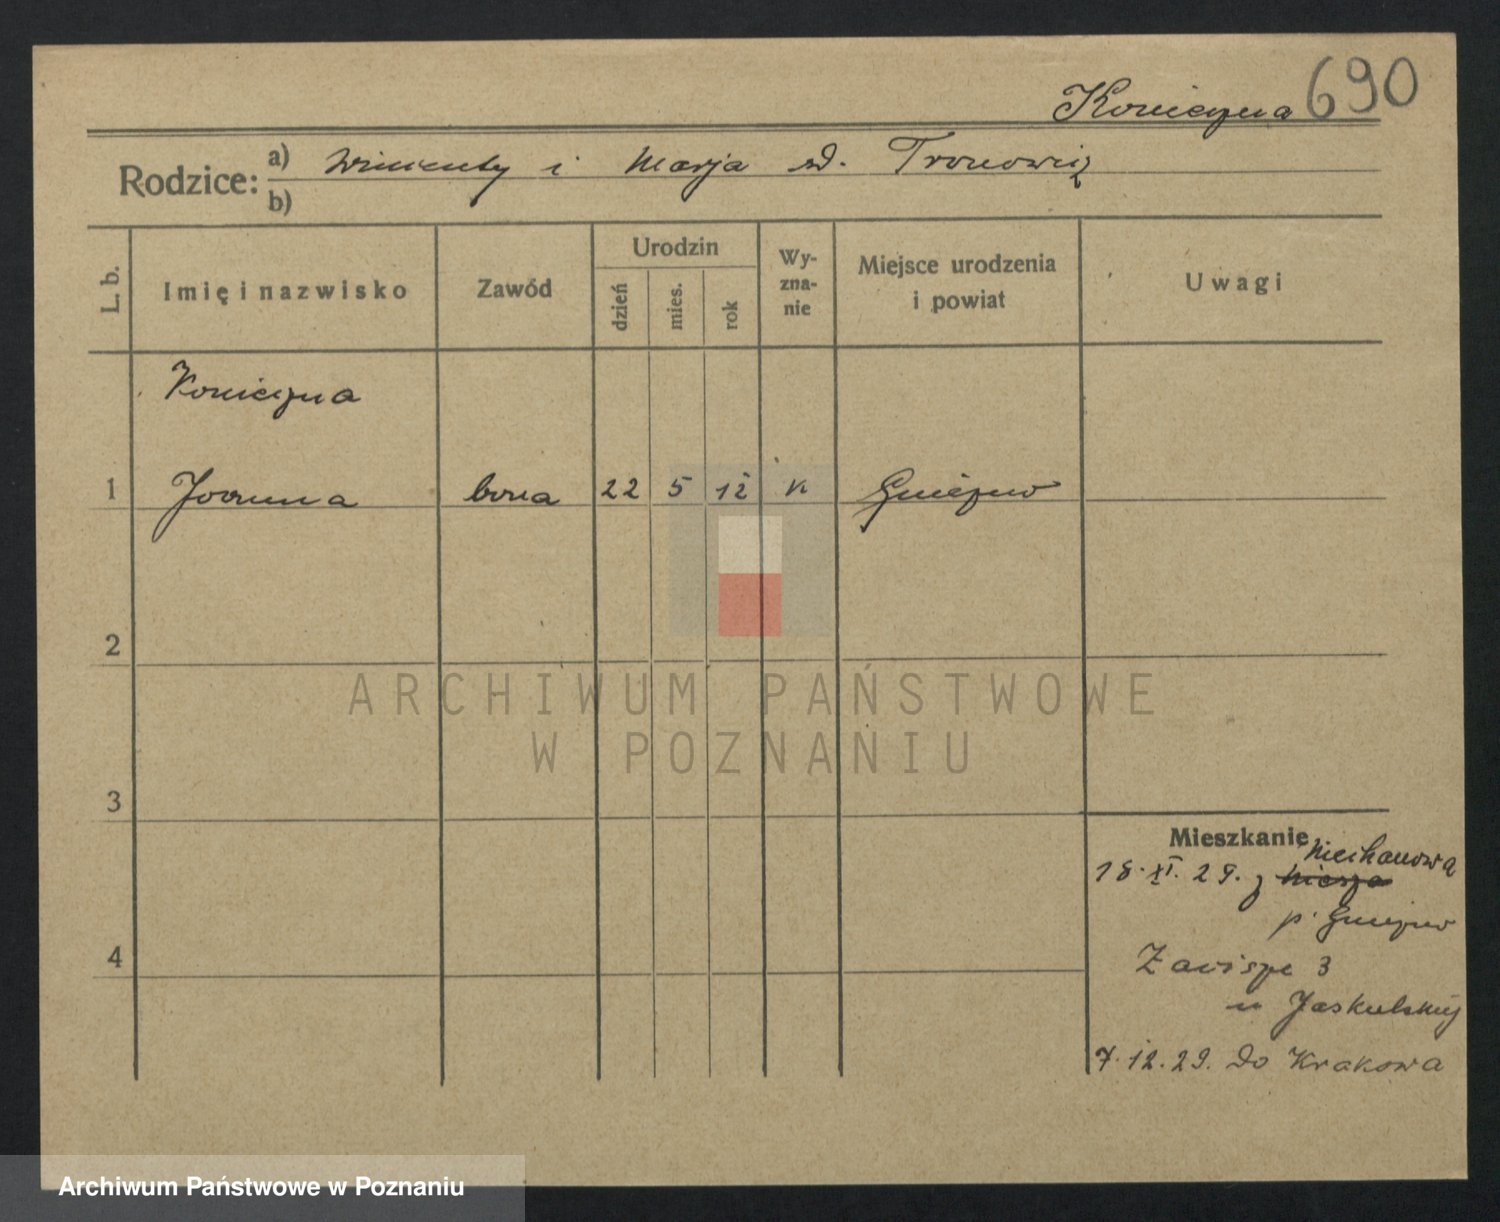 Konieczna 690
Rodzice: a) Wincenty i Marja zd.
b)
L. b.
Imię i nazwisko
Zawód
Urodzin
dzień
mies.
rok
Wy-
zna-
nie
Miejsce urodzenia
i powiat
Uwagi
Konieczna
1 Joanna bona 22 5 12 k Gniezno
2
3
4
Mieszkanie
Niechanowa
18. XI. 29. z
p. Gniezno
Zawiszy 3
u Jaskulskiej
7.12.29. do Krakowa
ARCHIWUM PAŃSTWOWE
W POZNANIU
Archiwum Państwowe w Poznaniu